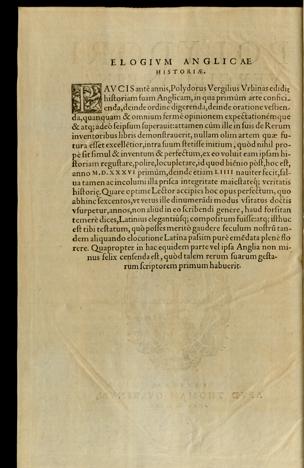 ELOGIVM ANGLICAE
HISTORIÆ.
PAVCIS antè annis, Polydorus Vergilius Vrbinas edidit
historiam suam Anglicam, in qua primùm arte confici
enda, deinde ordine digerenda, deinde oratione vestien-
da, quanquam & omnium fermè opinionem expectationémque
& atq; adeò seipsum superauit: attamen cùm ille in suis de Rerum
inuentoribus libris demonstrauerit, nullam olim artem quæ fu-
tura esset excellētior, intra suum stetisse initium, quòd nihil pro-
pè sit simul & inuentum & perfectum, ex eo voluit eam ipsam hi-
storiam regustare, polire, locupletare, id quod biēnio pòst, hoc est,
anno M.D.XXXVI primùm, deinde etiam LIIII nauiter fecit, sal-
ua tamen ac incolumi illa prisca integritate maiestatéq; veritatis
historiæ. Quare optime Lector accipies hoc opus perfectum, quo
abhinc sexcentos, vt vetus ille dinumerādi modus vsitatus doctis
vsurpetur, annos, non aliud in eo scribendi genere, haud forsitan
temerè dices, Latinius elegantiúsq; compositum fuisse: atq; isthuc
est tibi testatum, quò posses meritò gaudere seculum nostrū tan-
dem aliquando elocutione Latina passim purè emēdatè plenè flo
rere. Quapropter in hac equidem parte vel ipsa Anglia non mi-
nus felix censenda est, quòd talem rerum suarum gesta-
rum scriptorem primum habuerit.